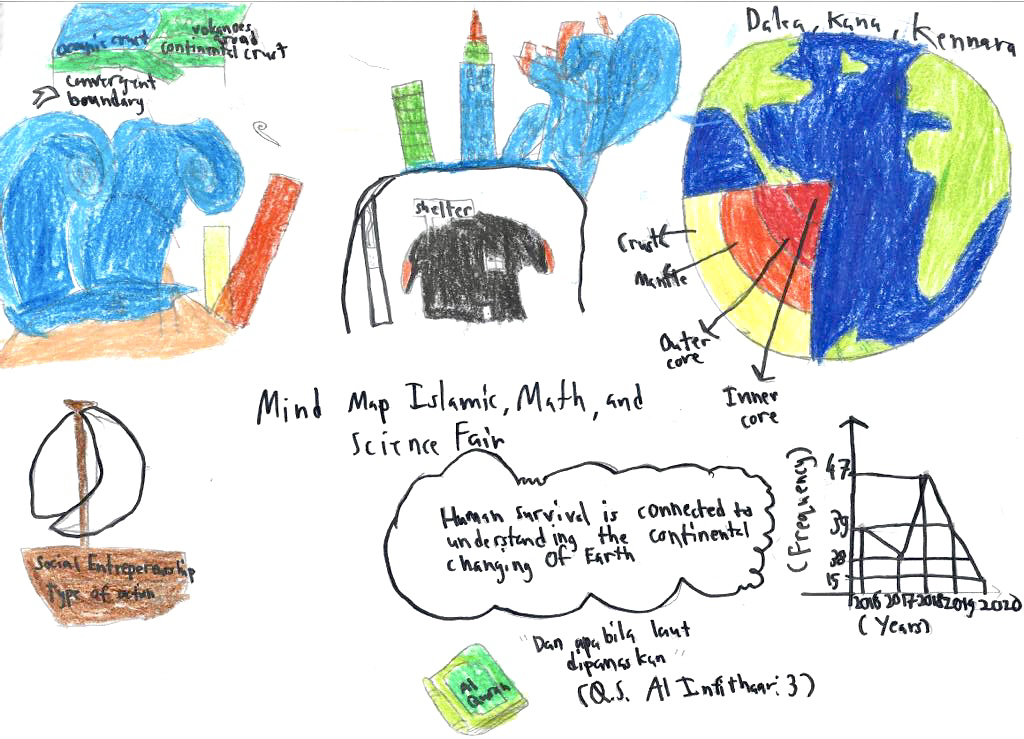 oceanic crust
volcanoes
broad
continental crust
convergent
boundary
shelter
Dalea, Kana, Kennara
Crust
Mantle
Outer
core
Inner
core
Mind Map Islamic, Math, and
Science Fair
Human survival is connected to
understanding the continental
changing Of Earth
(Frequency)
47
39
28
15
2016 2017 2018 2019 2020
(Years)
Social Entrepernership
Type of action
"Dan apabila laut
dipanaskan"
(Q.S. Al Infithaar: 3)
Al
Quran